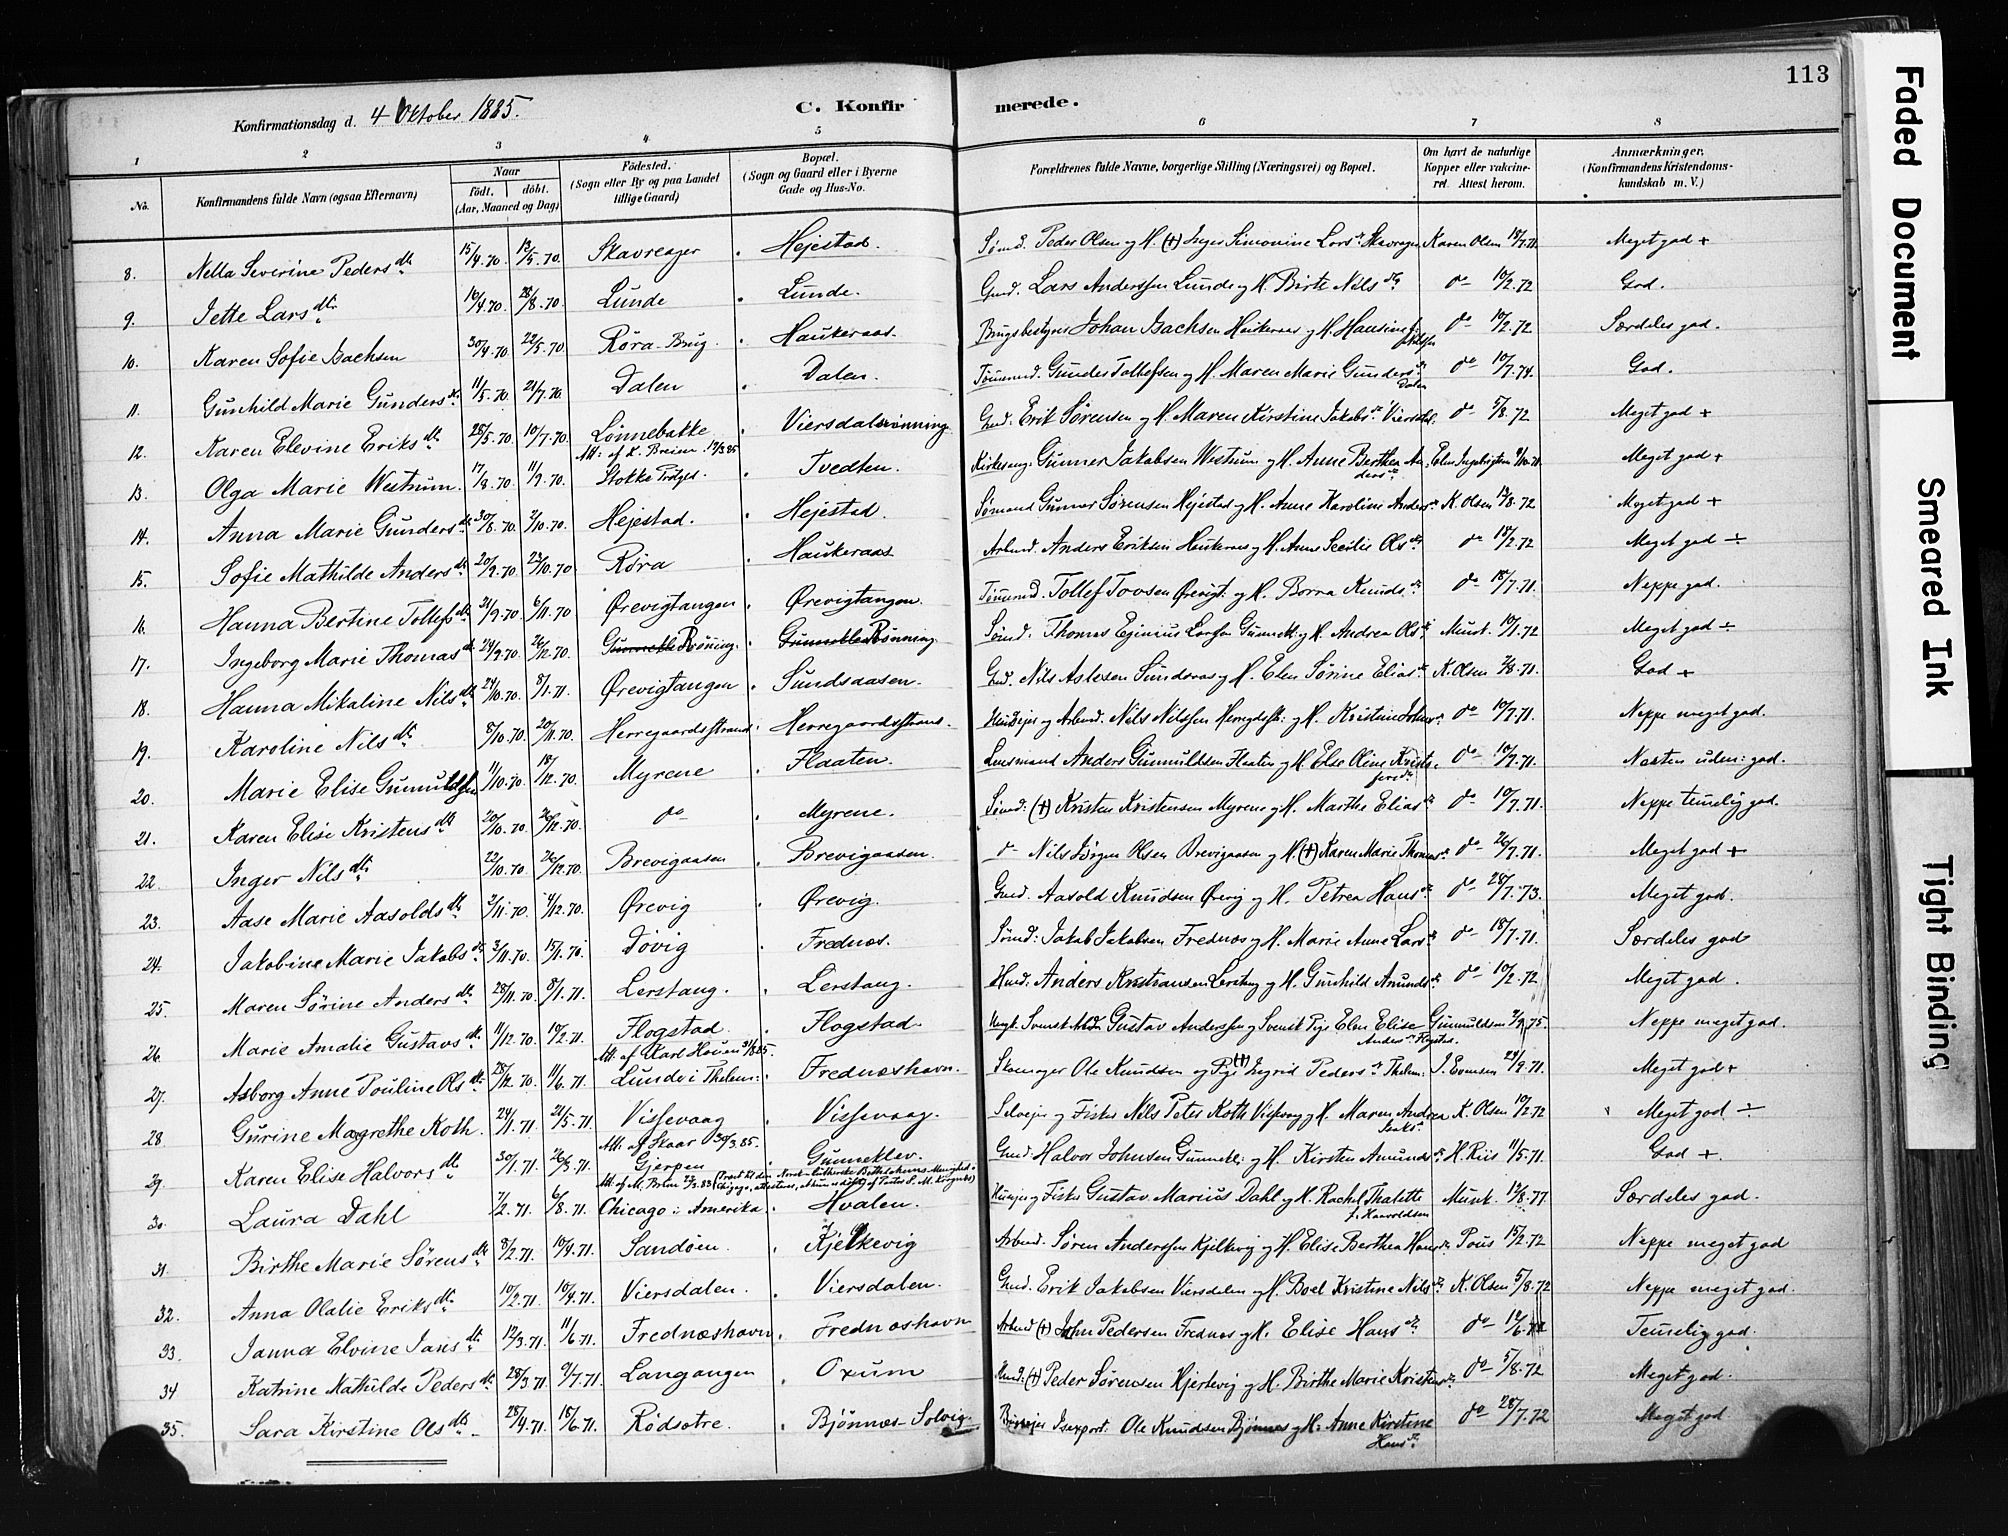 113
Konfirmationsdag d. 4 Oktober 1885.
C. Konfirmerede.
1 2 3 4 5 6 7 8
No.
Konfirmandens fulde Navn (ogsaa Efternavn)
Naar
födt. döbt.
(Aar, Maaned og Dag)
Födested.
(Sogn eller By og paa Landet
tillige Gaard)
Bopæl.
(Sogn og Gaard eller i Byerne
Gade og Hus-No.
Forældrenes fulde Navne, borgerlige Stilling (Næringsvei) og Bopæl.
Om havt de naturlige
Kopper eller vakcine-
ret. Attest herom.
Anmærkninger.
(Konfirmandens Kristendoms-
kundskab m. V.)
8. Nella Severine Pedersdtr 15/4.70. 13/5.70. Skavreager Hejestad. Sømd. Peder Olsen og H. (+) Inger Simonine Larsdr Skavreager Karen Olsen 18/7.71 Meget god +
9. Jette Larsdtr 16/4.70 28/8.70. Lunde Lunde. Gmd. Lars Anderssen Lunde og H. Birte Nilsdtr do 10/2.72 God.
10. Karen Sofie Isachsen 30/4.70 22/5.70. Røra Brug. Haukeraas. Brugsbestyrer Johan Isachsen Haukeraas og H. Hansine do 10/2.72 Særdeles god.
11. Gunhild Marie Gundersdtr 11/5.70 24/7.70. Dalen Dalen. Tømmrmd. Gunder Tollefsen og H. Maren Marie Gundersdtr Dalen do 10/7.74. God.
12. Karen Elevine Eriksdtr 28/5.70. 10/7.70. Lønnebakke Viersdalrønning Gmd. Erik Sørensen og H. Maren Kirstine Jakobsdr Viersdal. do 5/8.72 Meget god +
13. Olga Marie Westrum. 17/8.70. 11/9.70. Att: af K. Breien 12/3.85 Stokke Prdgd. Tvedten. Kirkesang. Gunner Jakobsen Westrum og H. Anne Berthea Andersdr Elen Ingebrigtsen 9/10.71 Meget god +
14. Anna Marie Gundersdtr 30/8.70. 2/10.70. Hejestad. Hejestad. Sømand Gunner Sørensen Hejestad og H. Anne Karoline Andersdr K. Olsen 12/8.72 Meget god +
15. Sofie Mathilde Andersdtr 20/9.70 23/10.70 Røra Haukeraas Arbmd. Anders Eriksen Haukeraas og H. Anne Secilie Olsdtr do 18/2.72 Meget god ÷
16. Hanna Bertine Tollefsdtr 21/9.70 6/11.70 Ørevigtangen Ørevigtangen. Tømmrmd. Tollef Tovsen Ørevigt. og H. Borra Knudsdtr do 18/7.71. Neppe god.
17. Ingeborg Marie Thomasdtr 24/9.70. 26/12.70. Gunnekle Rønning. Gunnekle Rønning. Sømd. Thomas Eginius Larsen Gunnekl. og H. Andrea Olsdtr Munk. 10/1.72 Meget god ÷
18. Hanna Mikaline Nilsdtr 24/10.70. 8/1.71. Ørevigtangen Sundsaasen. Gmd. Nils Aslesen Sundsaas og H. Elen Sørine Eliasdtr K. Olsen 2/8.71. God +
19. Karoline Nilsdtr 8/10.70. 20/11.70. Herregaardsstrand Herregaardsstrand. Husejer og Arbmd. Nils Nilssen Herregdsstr. og H. Kristine do 10/7.71. Neppe meget god.
20. Marie Elise Gunnuldsen 11/10.70 18/12.70. Myrene Flaaten. Lensmand Anders Gunnuldsen Flaaten og H. Else Oline Kristofersdr do 10/7.71. Næsten uden: god.
21. Karen Elise Kristensdtr 20/10.70 26/12.70. do Myrene. Sømd. (+) Kristen Kristensen Myrene og H. Marthe Eliasdr do 10/7.71. Neppe temelig god.
22. Inger Nilsdtr 22/10.70. 26/12.70. Brevigaasen Brevigaasen. do Nils Jørgen Olsen Brevigaasen og H. (+) Karen Marie Thomasdr do 26/7.71. Meget god +
23. Aase Marie Aasoldsdtr 3/11.70 4/12.70. Ørevig Ørevig. Gmd. Aasold Knudsen Ørevig og H. Petrea Hansdr do 28/7.73. Meget god.
24. Jakobine Marie Jakobsdtr 3/11.70. 15/1.70. Døvig Frednæs. Sømd. Jakob Jakobsen Frednæs og H. Marie Anne Larsdr do 18/7.71. Særdeles god
25. Maren Sørine Andersdtr 28/11.70. 8/1.71. Lerstang. Lerstang. Husmd. Anders Kristiansen Lerstang og H. Gunhild Amundsdr do 10/2.72 Meget god.
26. Marie Amalie Gustavsdtr 11/12.70 10/2.71. Flogstad. Flogstad. Ungk. Svensk Gustav Anderssen og Svensk Pige Elen Elise Andersdr Flogstad. Gunnuldsen 2/9.75. Neppe meget god.
27. Asborg Anne Pouline Olsdtr 28/12.70 11/6.71. Att. af Karl Hauen 31/3 85. Lunde i Thelem: Frednæshavn. Skomager Ole Knudsen og Pige (+) Ingrid Pedersdr Thelem. J. Evensen 24/9.71. Meget god +
28. Gurine Magrethe Roth. 24/1.71. 21/5.71. Vissevaag Vissevaag. Selvejer og Fisker Nils Peter Roth Vissevaag og H. Maren Andrea Isaksdr K. Olsen 10/2.72 Meget god ÷
29. Karen Elise Halvorsdtr 30/1.71. 26/3.71. Att. af Skaar 30/3.85. Gjerpen Gunneklev. Gmd. Halvor Johnsen Gunnekl. og H. Kirsten Amundsdr H. Riis 11/5.71. God +.
30. Laura Dahl 7/2.71. 6/8.71. Chicago i Amerika. Hvalen. Husejer og Fisker Gustav Marius Dahl og H. Rachel Thalette f. Haavoldsen Munk. 12/8.77 Særdeles god.
31. Birthe Marie Sørensdtr 8/2.71. 10/4.71. Sandøen. Kjelkevig Arbmd. Søren Anderssen Kjelkevig og H. Elise Berthea Hansdr Pous 15/2.72 Neppe meget god
32. Anna Olalie Eriksdtr 10/2.71. 10/4.71. Viersdalen. Viersdalen. Gmd. Erik Jakobsen Viersdalen og H. Boel Kristine Nilsdr K. Olsen 5/8.72 Neppe meget god.
33. Janna Elvine Jansdtr 12/3.71. 11/6.71. Frednæshavn Frednæshavn Arbmd (+) John Pedersen Frednæs og H. Elise Hansdtr do Temelig god.
34 Katrine Mathilde Pedersdtr 28/3.71. 9/7.71. Langangen Oxum (+) Peder Sørensen Hjertevig og H. Birthe Marie Kristensdr do 5/8.72 Meget god.
35. Sara Kirstine Olsdtr 28/4.71. 18/6.71. Rödsætre. Bjønnæs-Solvig. Ole Knudsen Bjønnæs og H. Anne Kirstine Hansdr do 28/7.72 Meget god
Faded Document
Smeared Ink
Tight Binding